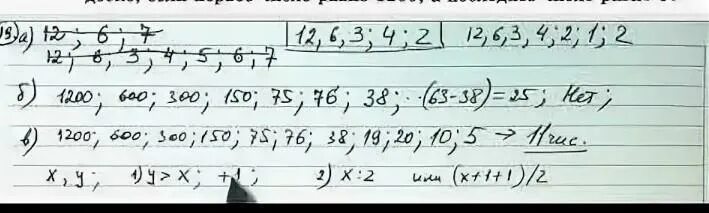 19 а) 12 ; 6 ; 7 12, 6, 3 ; 4 ; 2 12, 6, 3, 4 ; 2 ; 1 ; 2
12 ; 6, 3 ; 4 ; 5 ; 6 ; 7
б) 1200; 600; 300; 150; 75; 76; 38; (63-38)=25; Нет;
в) 1200, 600; 300; 150; 75; 76; 38, 19; 20; 10; 5 → 11 чис.
x, y; 1) y > x; +1; 2) x:2 или (x+1+1)/2